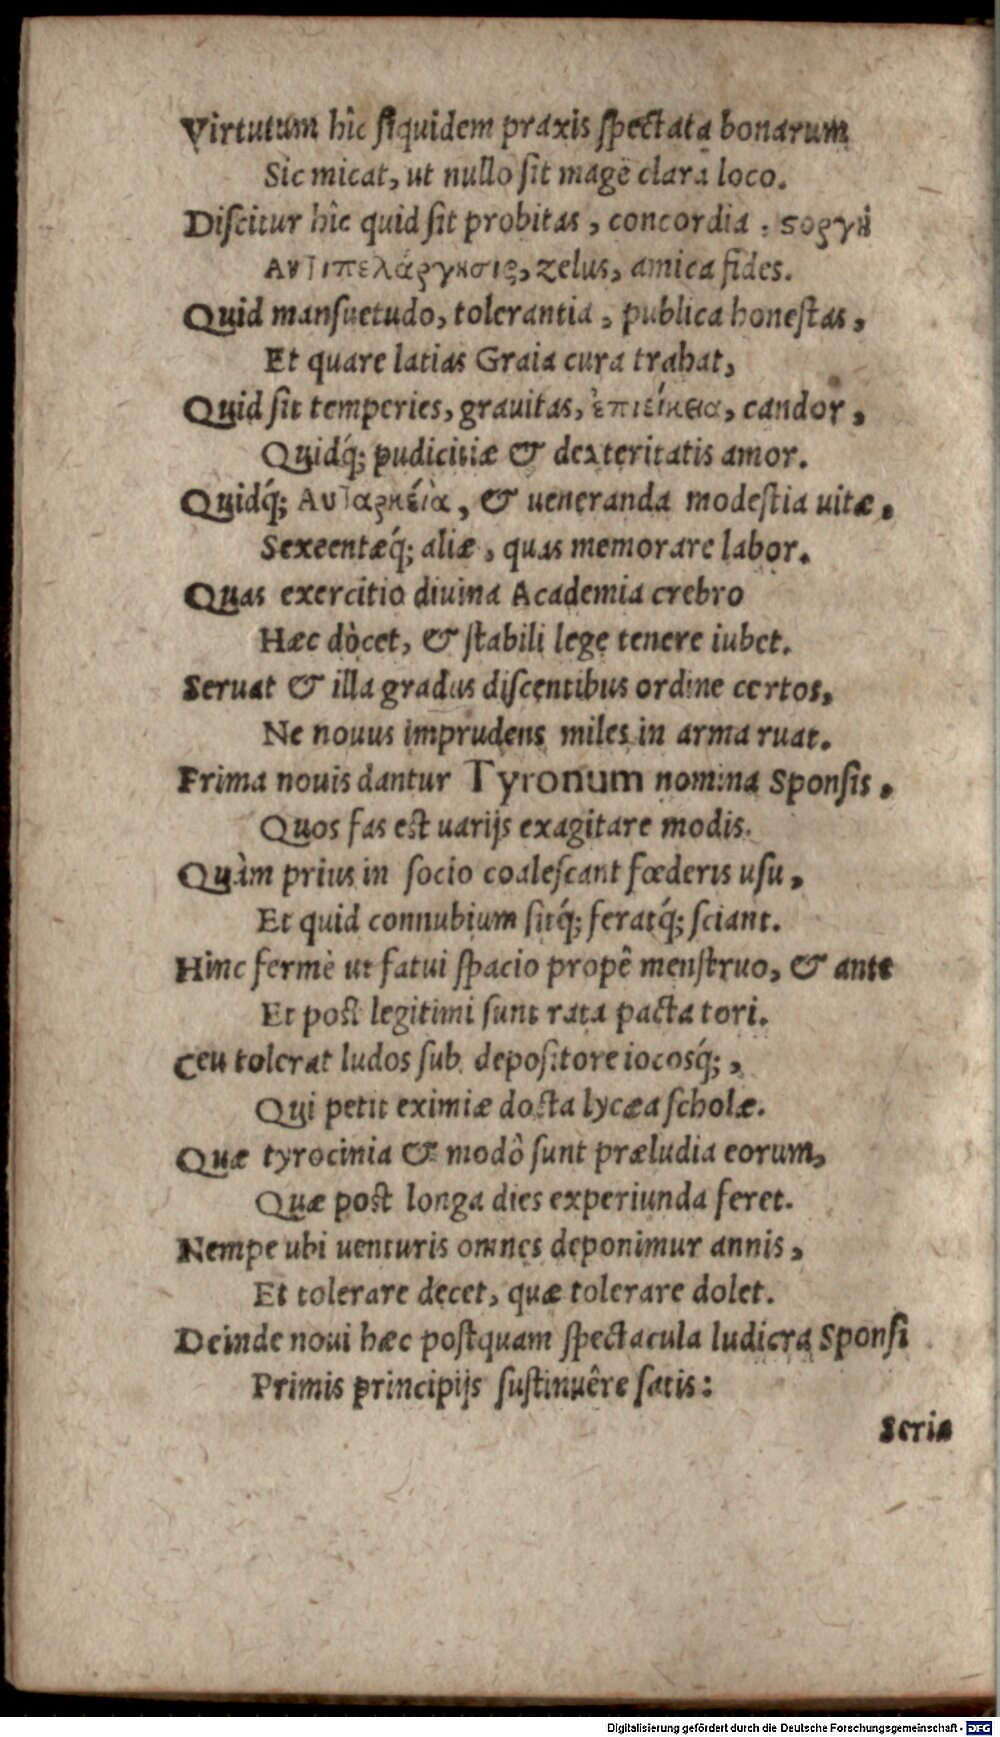 Virtutum hîc ſiquidem praxis ſpectata bonarum
Sic micat, ut nullo ſit magè clara loco.
Diſcitur hîc quid ſit probitas, concordia, ϛοργὴ
Αντιπελάργησις, zelus, amica fides.
Quid manſuetudo, tolerantia, publica honeſtas,
Et quare latias Graia cura trahat,
Quid ſit temperies, grauitas, ἐπιείκεια, candor,
Quidq́; pudicitiæ & dexteritatis amor.
Quidq́; Αυταρκεία, & ueneranda modeſtia uitæ,
Sexcentæq́; aliæ, quas memorare labor.
Quas exercitio diuina Academia crebro
Hæc dòcet, & ſtabili lege tenere iubet.
Seruat & illa gradus diſcentibus ordine certos,
Ne nouus imprudens miles in arma ruat.
Prima nouis dantur Tyronum nomina Sponſis,
Quos fas eſt uarijs exagitare modis.
Quàm prius in ſocio coaleſcant fœderis uſu,
Et quid connubium ſitq́; feratq́; ſciant.
Hinc fermè ut fatui ſpacio propê menſtruo, & ante
Et poſt legitimi ſunt rata pacta tori.
Ceu tolerat ludos ſub depoſitore iocosq́;,
Qui petit eximiæ docta lycæa ſcholæ.
Quæ tyrocinia & modô ſunt præludia eorum,
Quæ poſt longa dies experiunda feret.
Nempe ubi uenturis omnes deponimur annis,
Et tolerare decet, quæ tolerare dolet.
Deinde noui hæc poſtquam ſpectacula ludicra Sponſi
Primis principijs ſuſtinuêre ſatis:
Seria
Digitalisierung gefördert durch die Deutsche Forschungsgemeinschaft - DFG